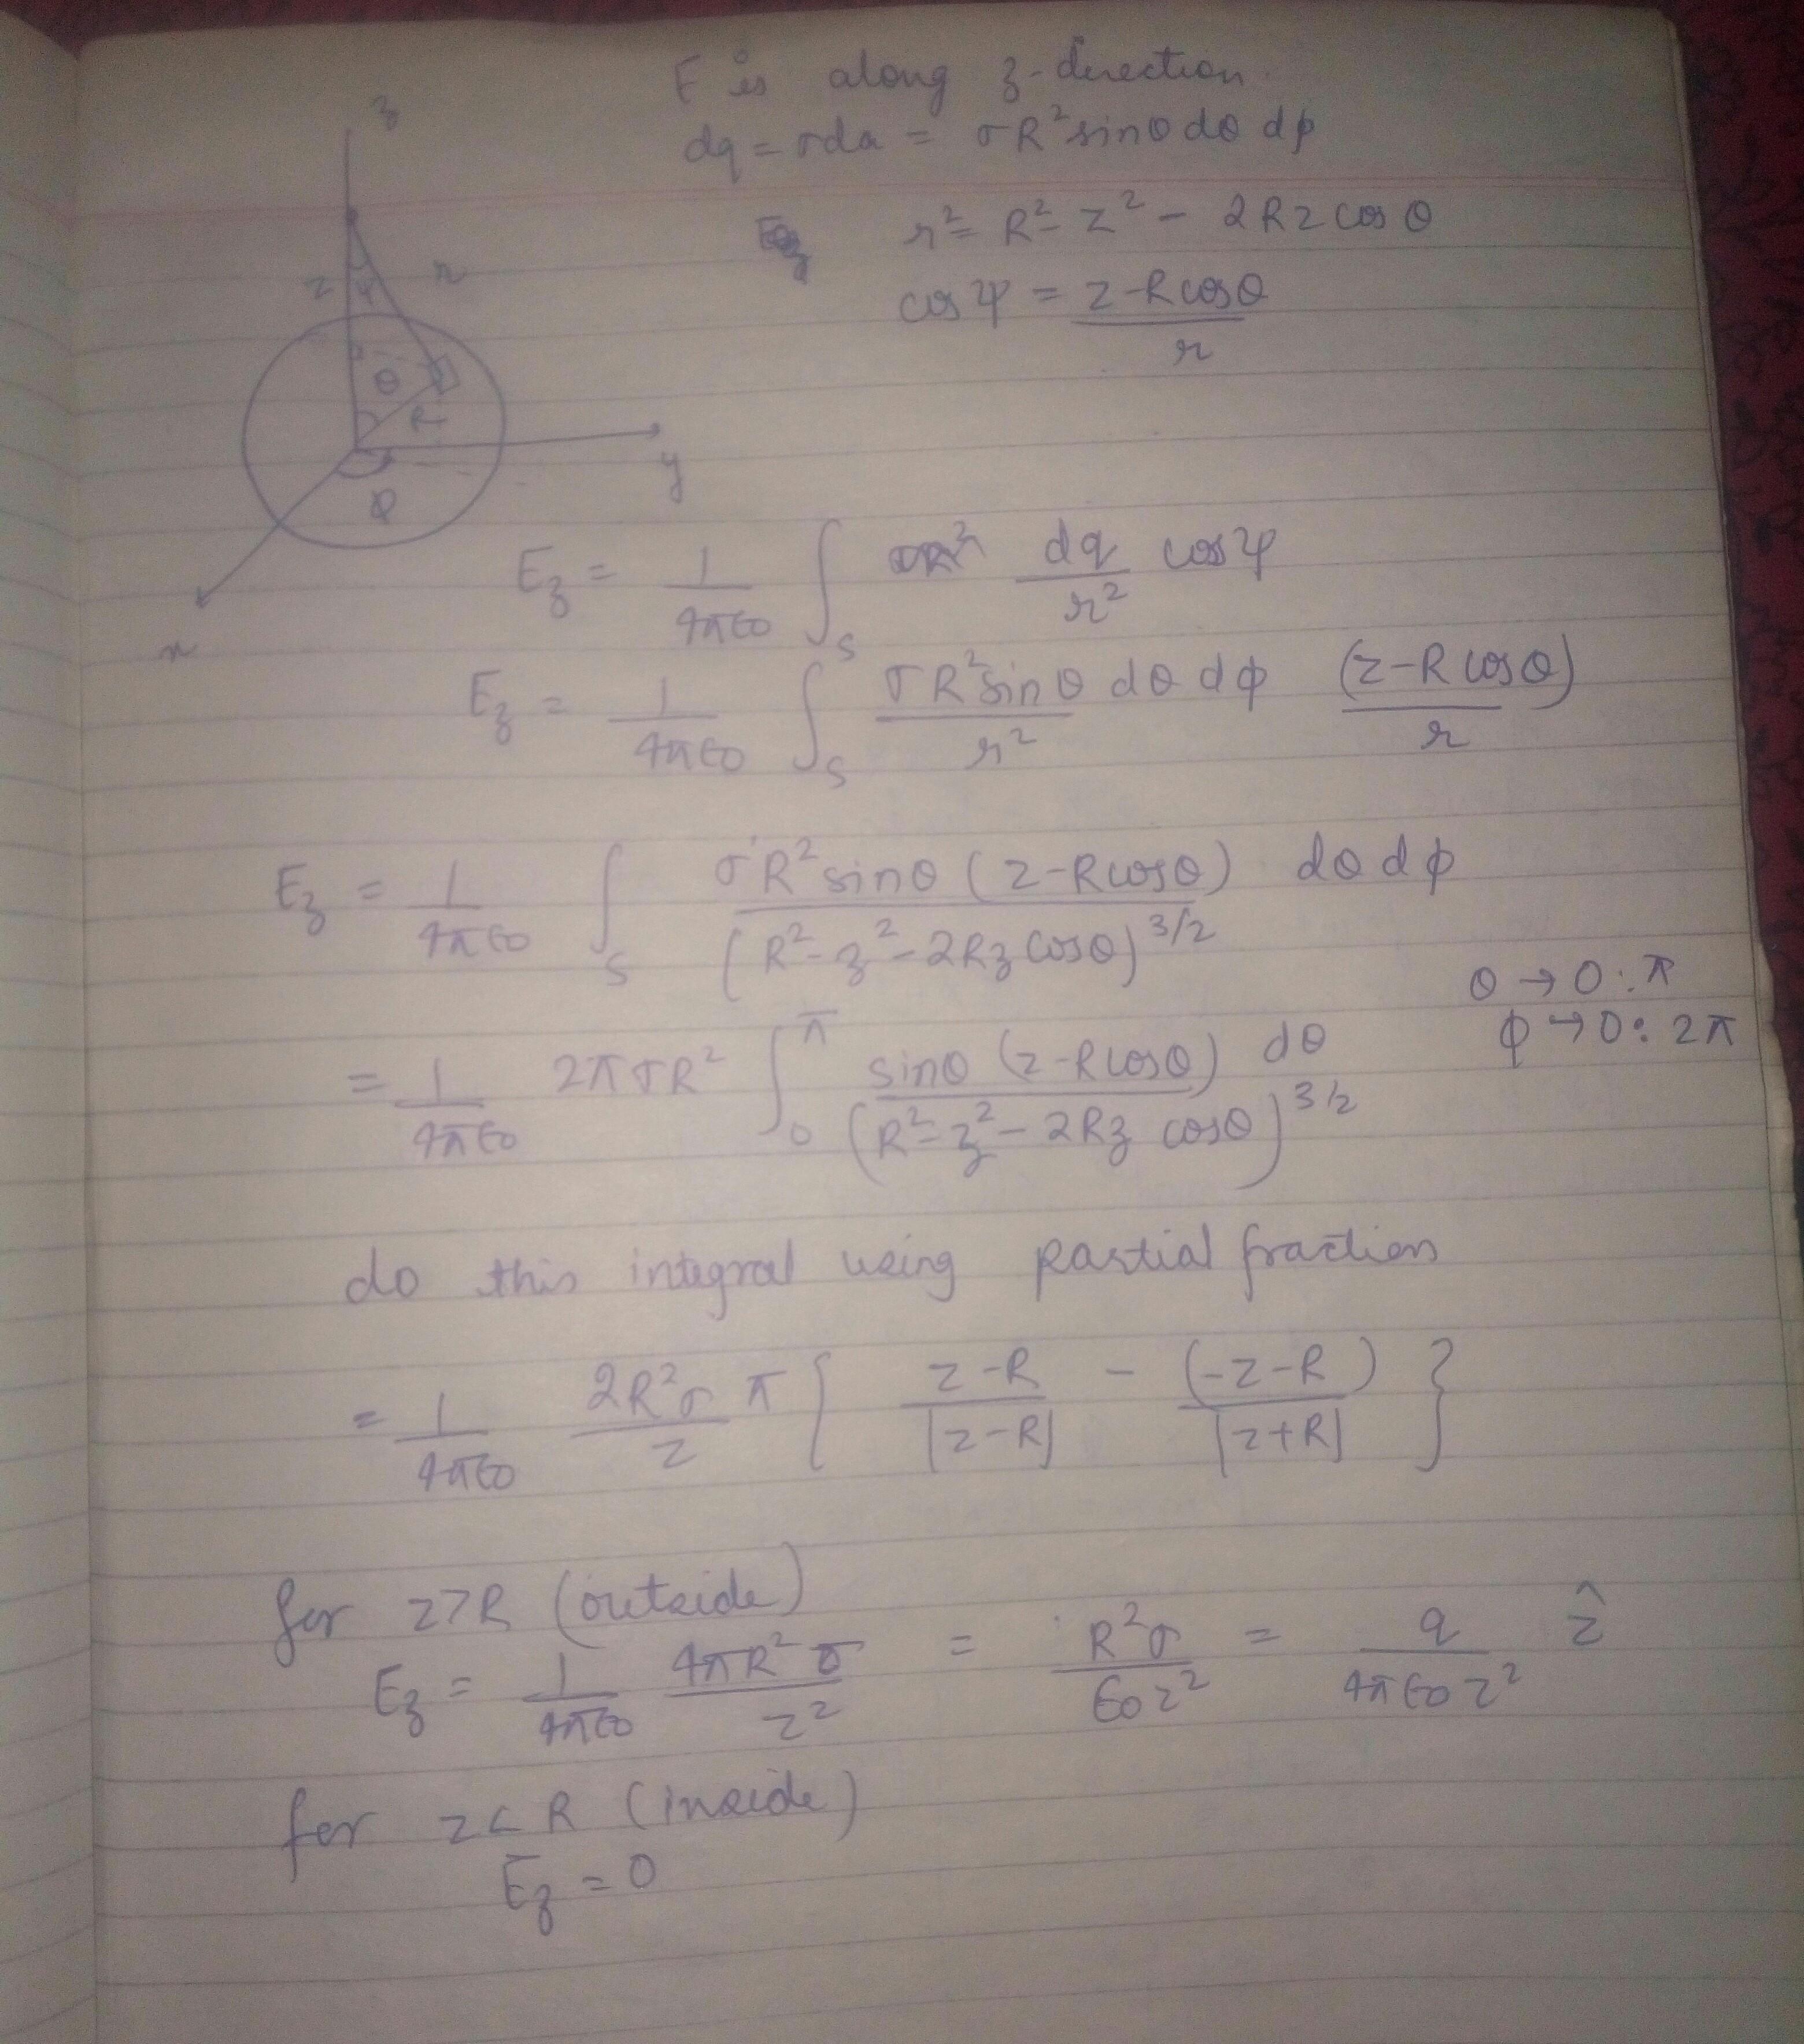 E is along z-direction.
dq = σda = σR² sinθ dθ dφ
r² = R² - z² - 2Rz cos θ
cos ψ = z-Rcosθ / r
z
z ψ r
θ
R
y
φ
x
E_z = 1/4πε0 ∫_S dq/r² cos ψ
E_z = 1/4πε0 ∫_S σR² sinθ dθ dφ / r² (z-R cosθ)/r
E_z = 1/4πε0 ∫_S σR² sinθ (z-Rcosθ) / (R² - z² - 2Rz cosθ)^3/2 dθ dφ
θ → 0 : π
φ → 0 : 2π
= 1/4πε0 2πσR² ∫_0^π sinθ (z-Rcosθ) dθ / (R² - z² - 2Rz cosθ)^3/2
do this integral using partial fraction
= 1/4πε0 2R²σ π/z { z-R/|z-R| - (-z-R)/|z+R| }
for z>R (outside)
E_z = 1/4πε0 4πR²σ/z² = R²σ/ε0z² = q/4πε0z² ẑ
for z<R (inside)
E_z = 0